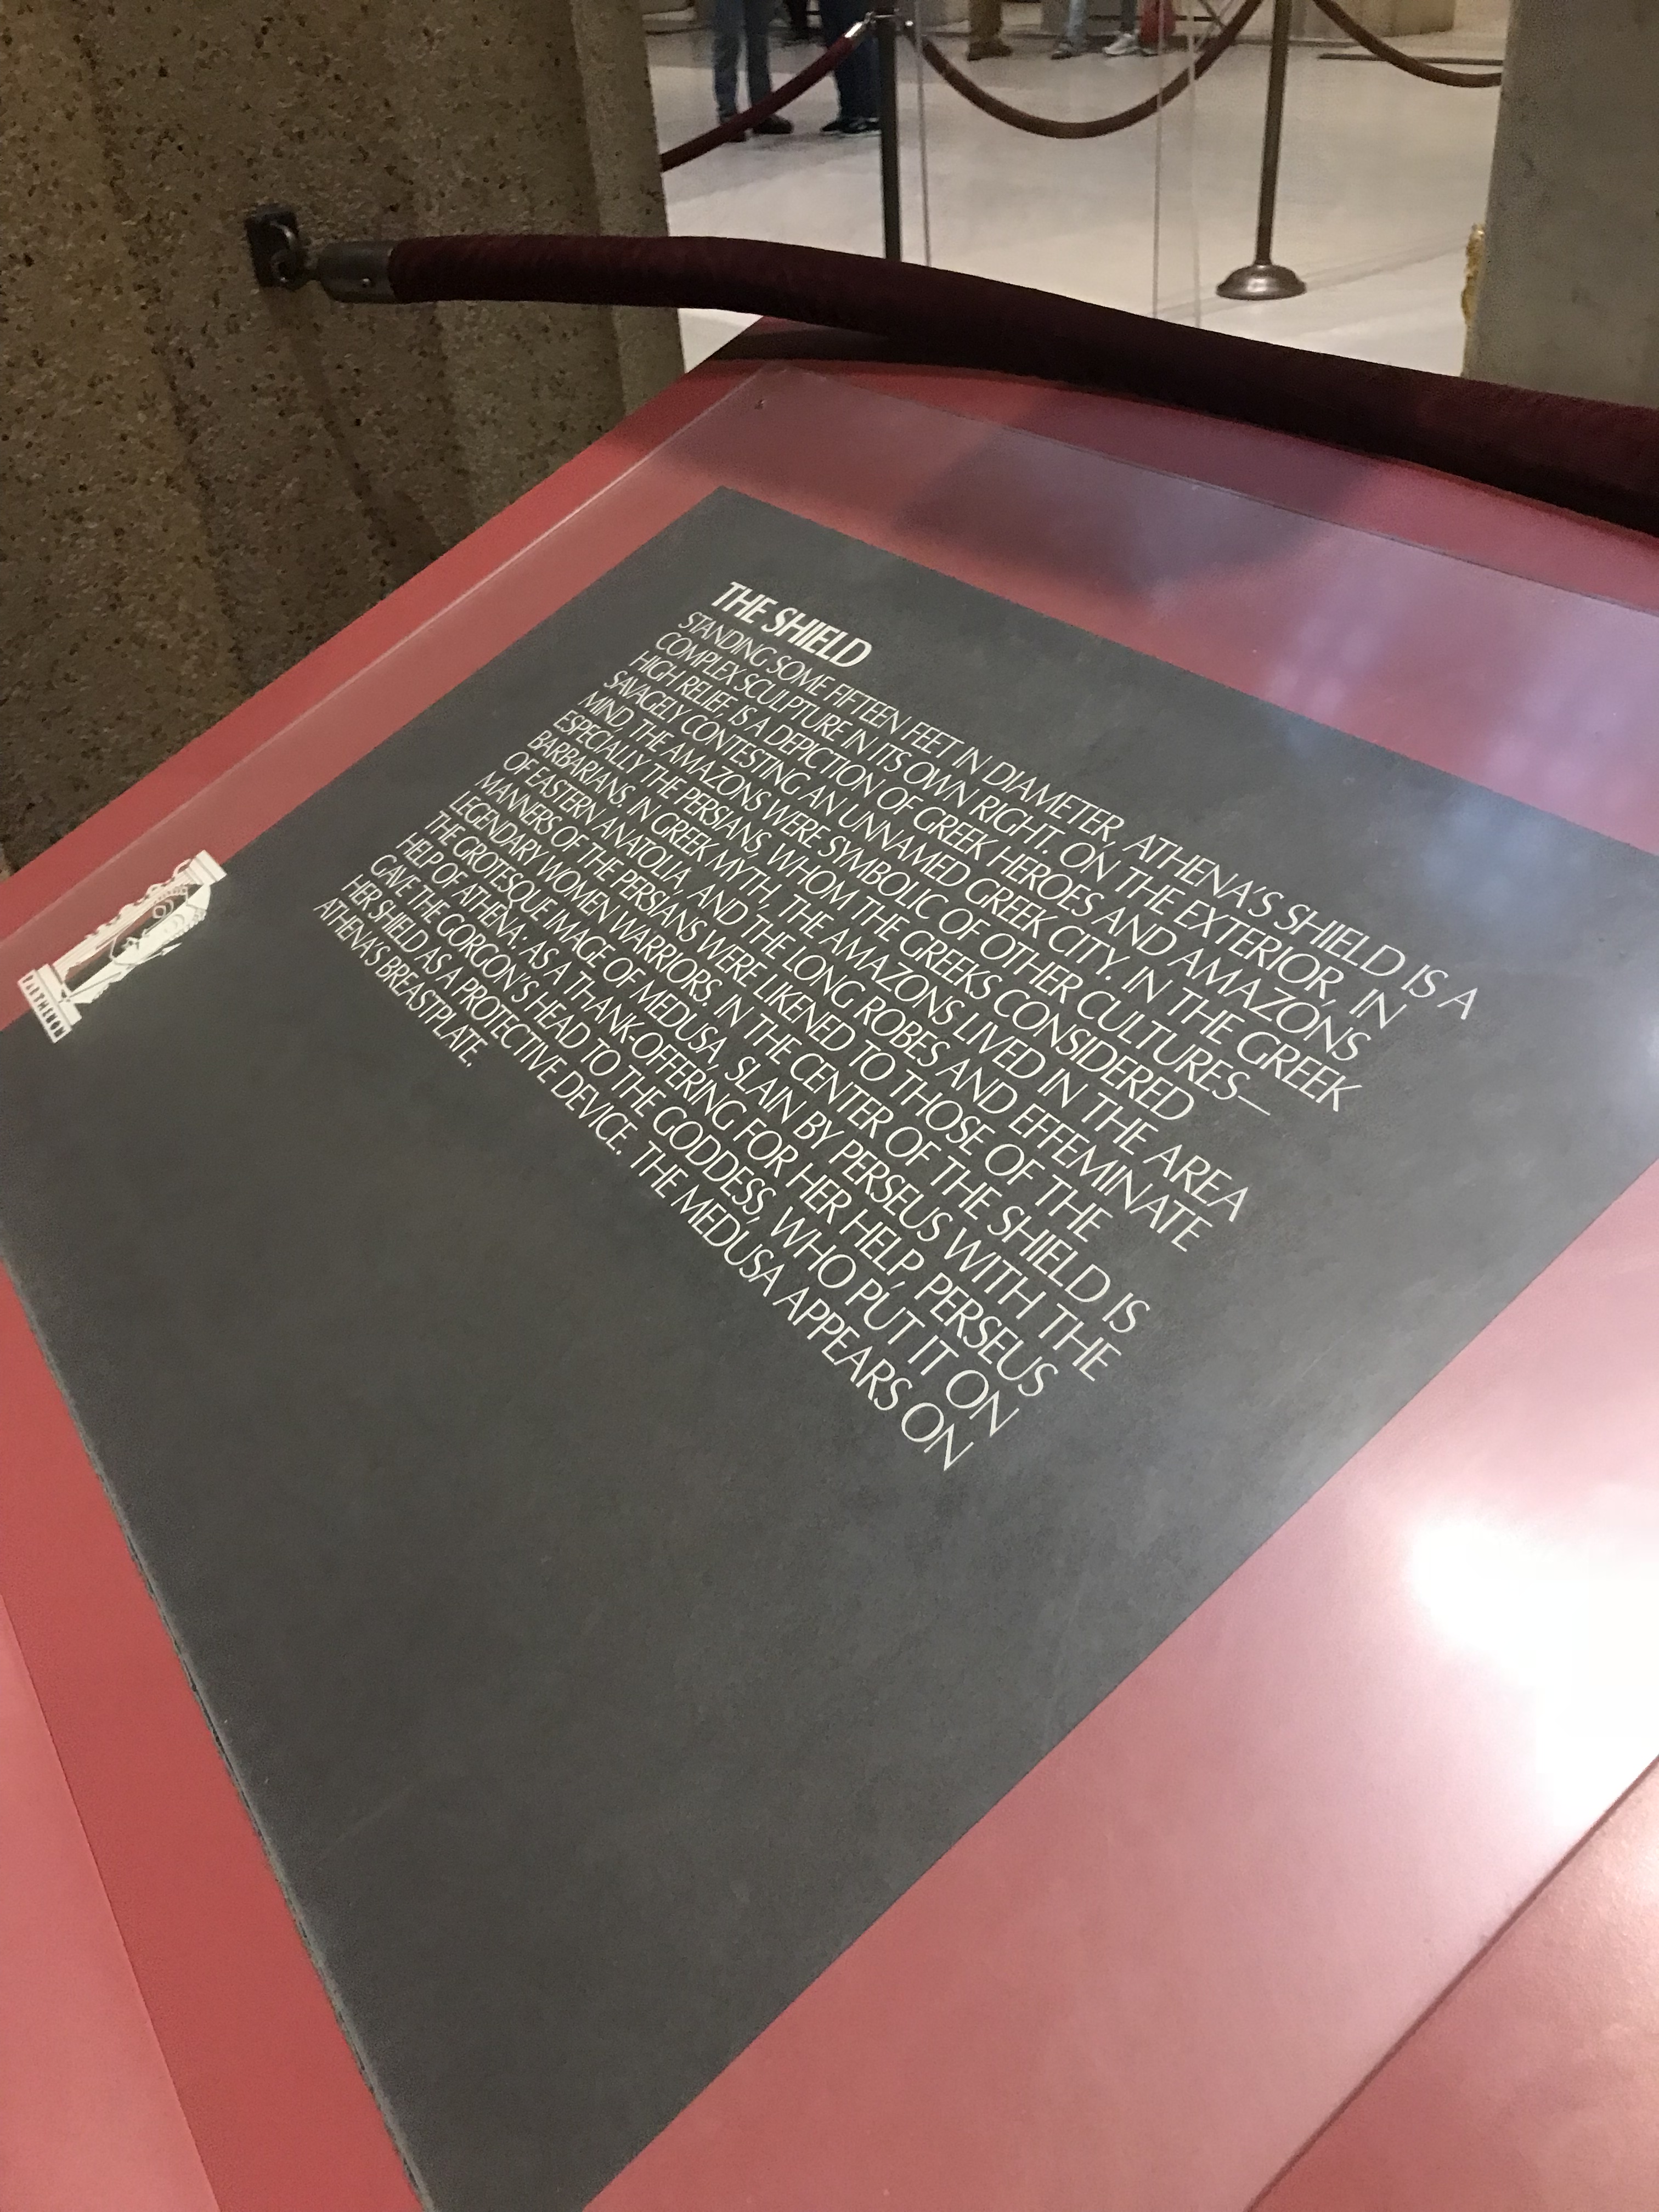 THE SHIELD
STANDING SOME FIFTEEN FEET IN DIAMETER, ATHENA'S SHIELD IS A
COMPLEX SCULPTURE IN ITS OWN RIGHT. ON THE EXTERIOR, IN
HIGH RELIEF, IS A DEPICTION OF GREEK HEROES AND AMAZONS
SAVAGELY CONTESTING AN UNNAMED GREEK CITY. IN THE GREEK
MIND, THE AMAZONS WERE SYMBOLIC OF OTHER CULTURES—
ESPECIALLY THE PERSIANS, WHOM THE GREEKS CONSIDERED
BARBARIANS. IN GREEK MYTH, THE AMAZONS LIVED IN THE AREA
OF EASTERN ANATOLIA, AND THE LONG ROBES AND EFFEMINATE
MANNERS OF THE PERSIANS WERE LIKENED TO THOSE OF THE
LEGENDARY WOMEN WARRIORS. IN THE CENTER OF THE SHIELD IS
THE GROTESQUE IMAGE OF MEDUSA, SLAIN BY PERSEUS WITH THE
HELP OF ATHENA. AS A THANK-OFFERING FOR HER HELP, PERSEUS
GAVE THE GORGON'S HEAD TO THE GODDESS, WHO PUT IT ON
HER SHIELD AS A PROTECTIVE DEVICE. THE MEDUSA APPEARS ON
ATHENA'S BREASTPLATE.
PARTHENON